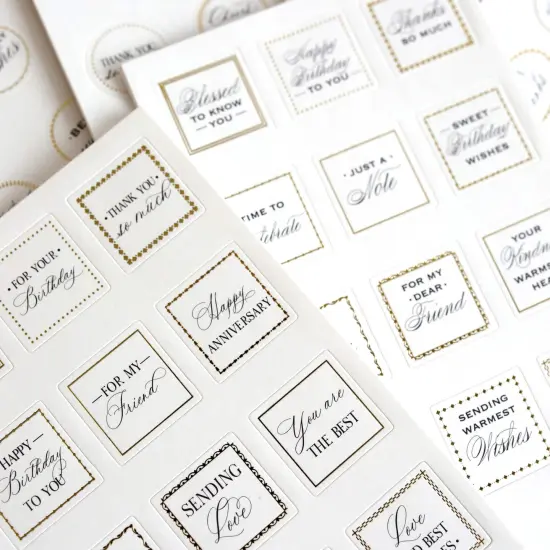 Wishes
THANK YOU
Thanks
SO MUCH
Happy
Birthday
TO YOU
Blessed
TO KNOW
— YOU —
— SWEET —
Birthday
WISHES
JUST A
Note
TIME TO
Celebrate
YOUR
Kindness
WARMS MY
FOR MY
· DEAR ·
Friend
SENDING
WARMEST
Wishes
THANK YOU
so much
· FOR YOUR ·
Birthday
Happy
ANNIVERSARY
— FOR MY —
Friend
You are
THE BEST
HAPPY
Birthday
TO YOU
SENDING
Love
Love
BEST